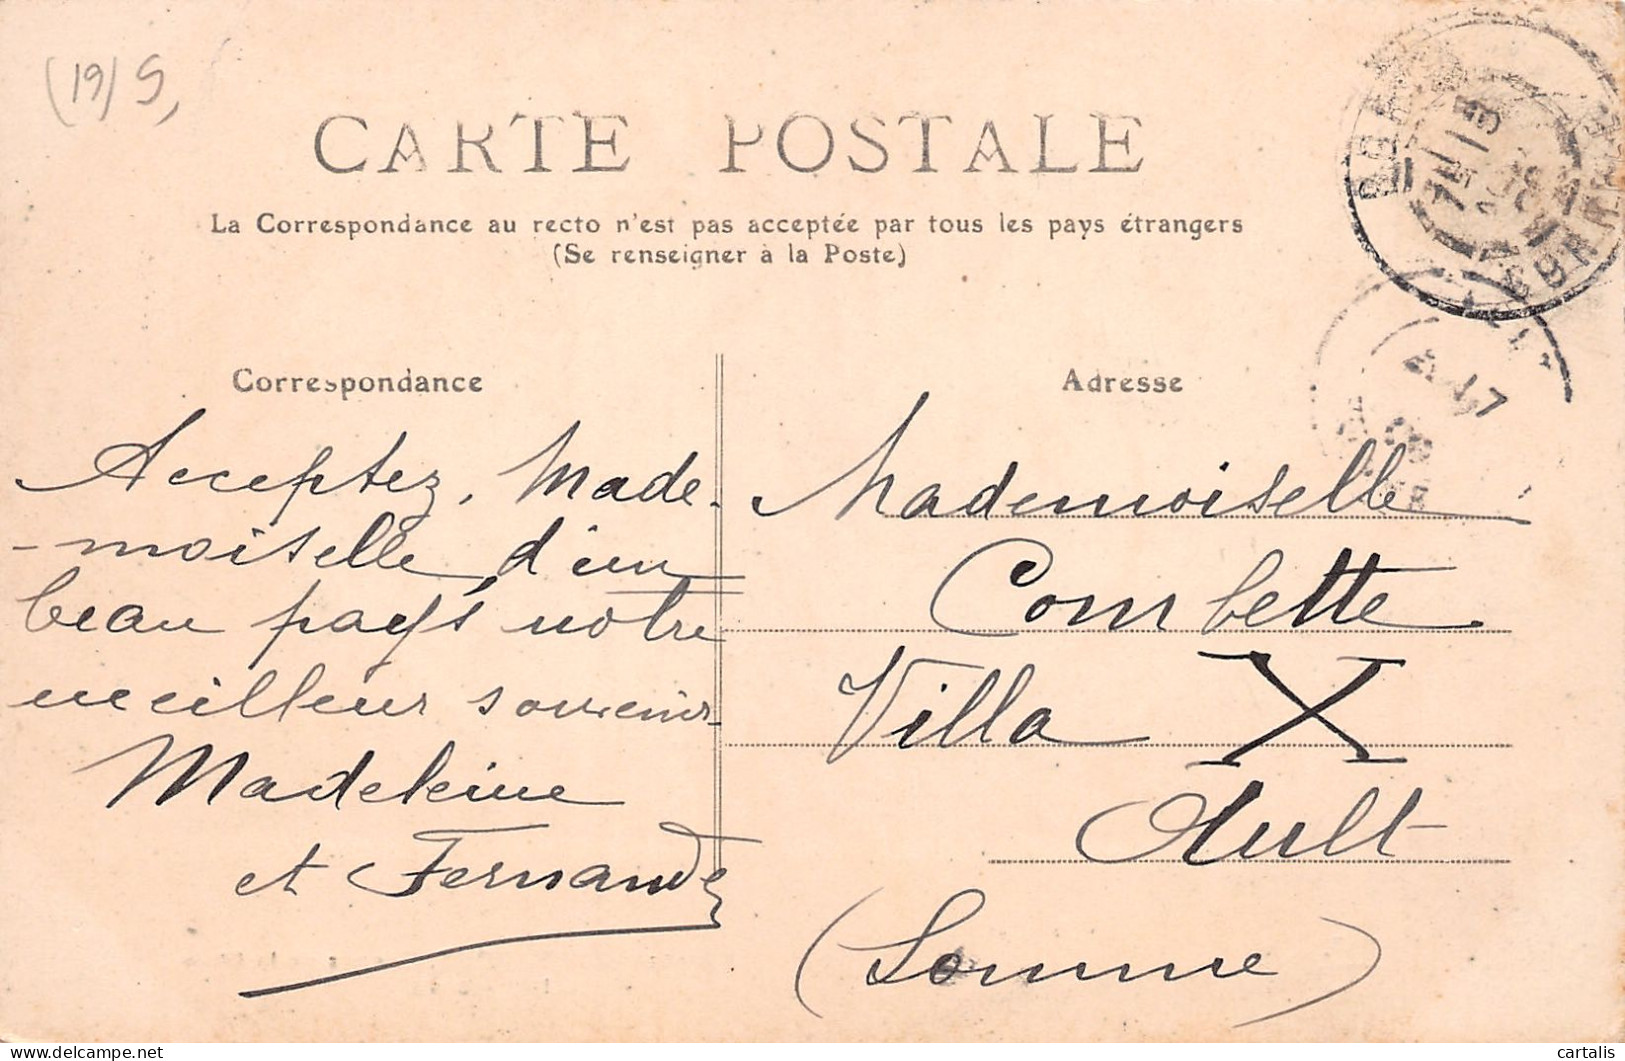 (19) S,
CARTE POSTALE
La Correspondance au recto n'est pas acceptée par tous les pays étrangers
(Se renseigner à la Poste)
Correspondance
Acceptez, Made-
-moiselle, d'un
beau pays notre
meilleur souvenir
Madeleine
et Fernande
Adresse
Mademoiselle
Combette
Villa X
Ault
(Somme)
cartalis